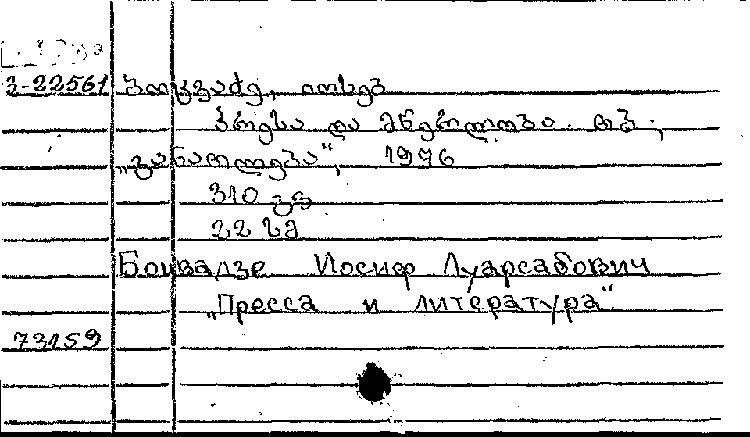 3-22561 ბოცვაძე, იოსებ
პრესა და მწერლობა. თბ.,
„განათლება“, 1976
310 გვ
22 სმ
Боцвадзе Иосиф Луарсабович
„Пресса и литература“
73159